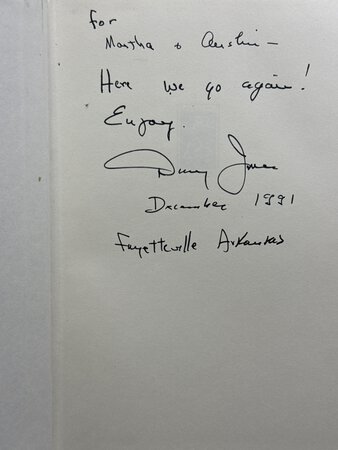 For
Martha & Austin —
Here we go again!
Enjoy.
Jones
December 1991
Fayetteville Arkansas